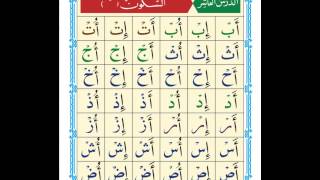 الدرس العاشر السكون
أَبْ إِبْ أُبْ أَتْ إِتْ أُتْ
أَثْ إِثْ أُثْ أَجْ إِجْ أُجْ
أَحْ إِحْ أُحْ أَخْ إِخْ أُخْ
أَدْ إِدْ أُدْ أَذْ إِذْ أُذْ
أَرْ إِرْ أُرْ أَزْ إِزْ أُزْ
أَسْ إِسْ أُسْ أَشْ إِشْ أُشْ
أَصْ إِصْ أُصْ أَضْ إِضْ أُضْ